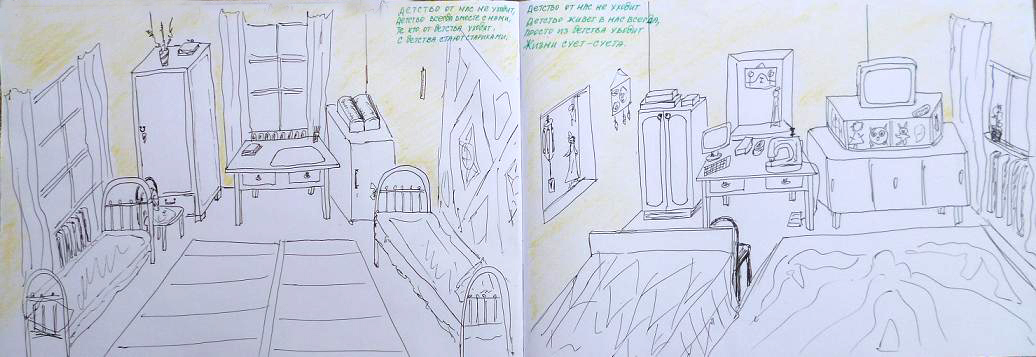 Детство от нас не уходит,
Детство всегда вместе с нами,
Те кто от детства уходят,
С детства стают стариками.
Детство от нас не уходит
Детство живёт в нас всегда,
просто из детства уводит
Жизни сует-суета.